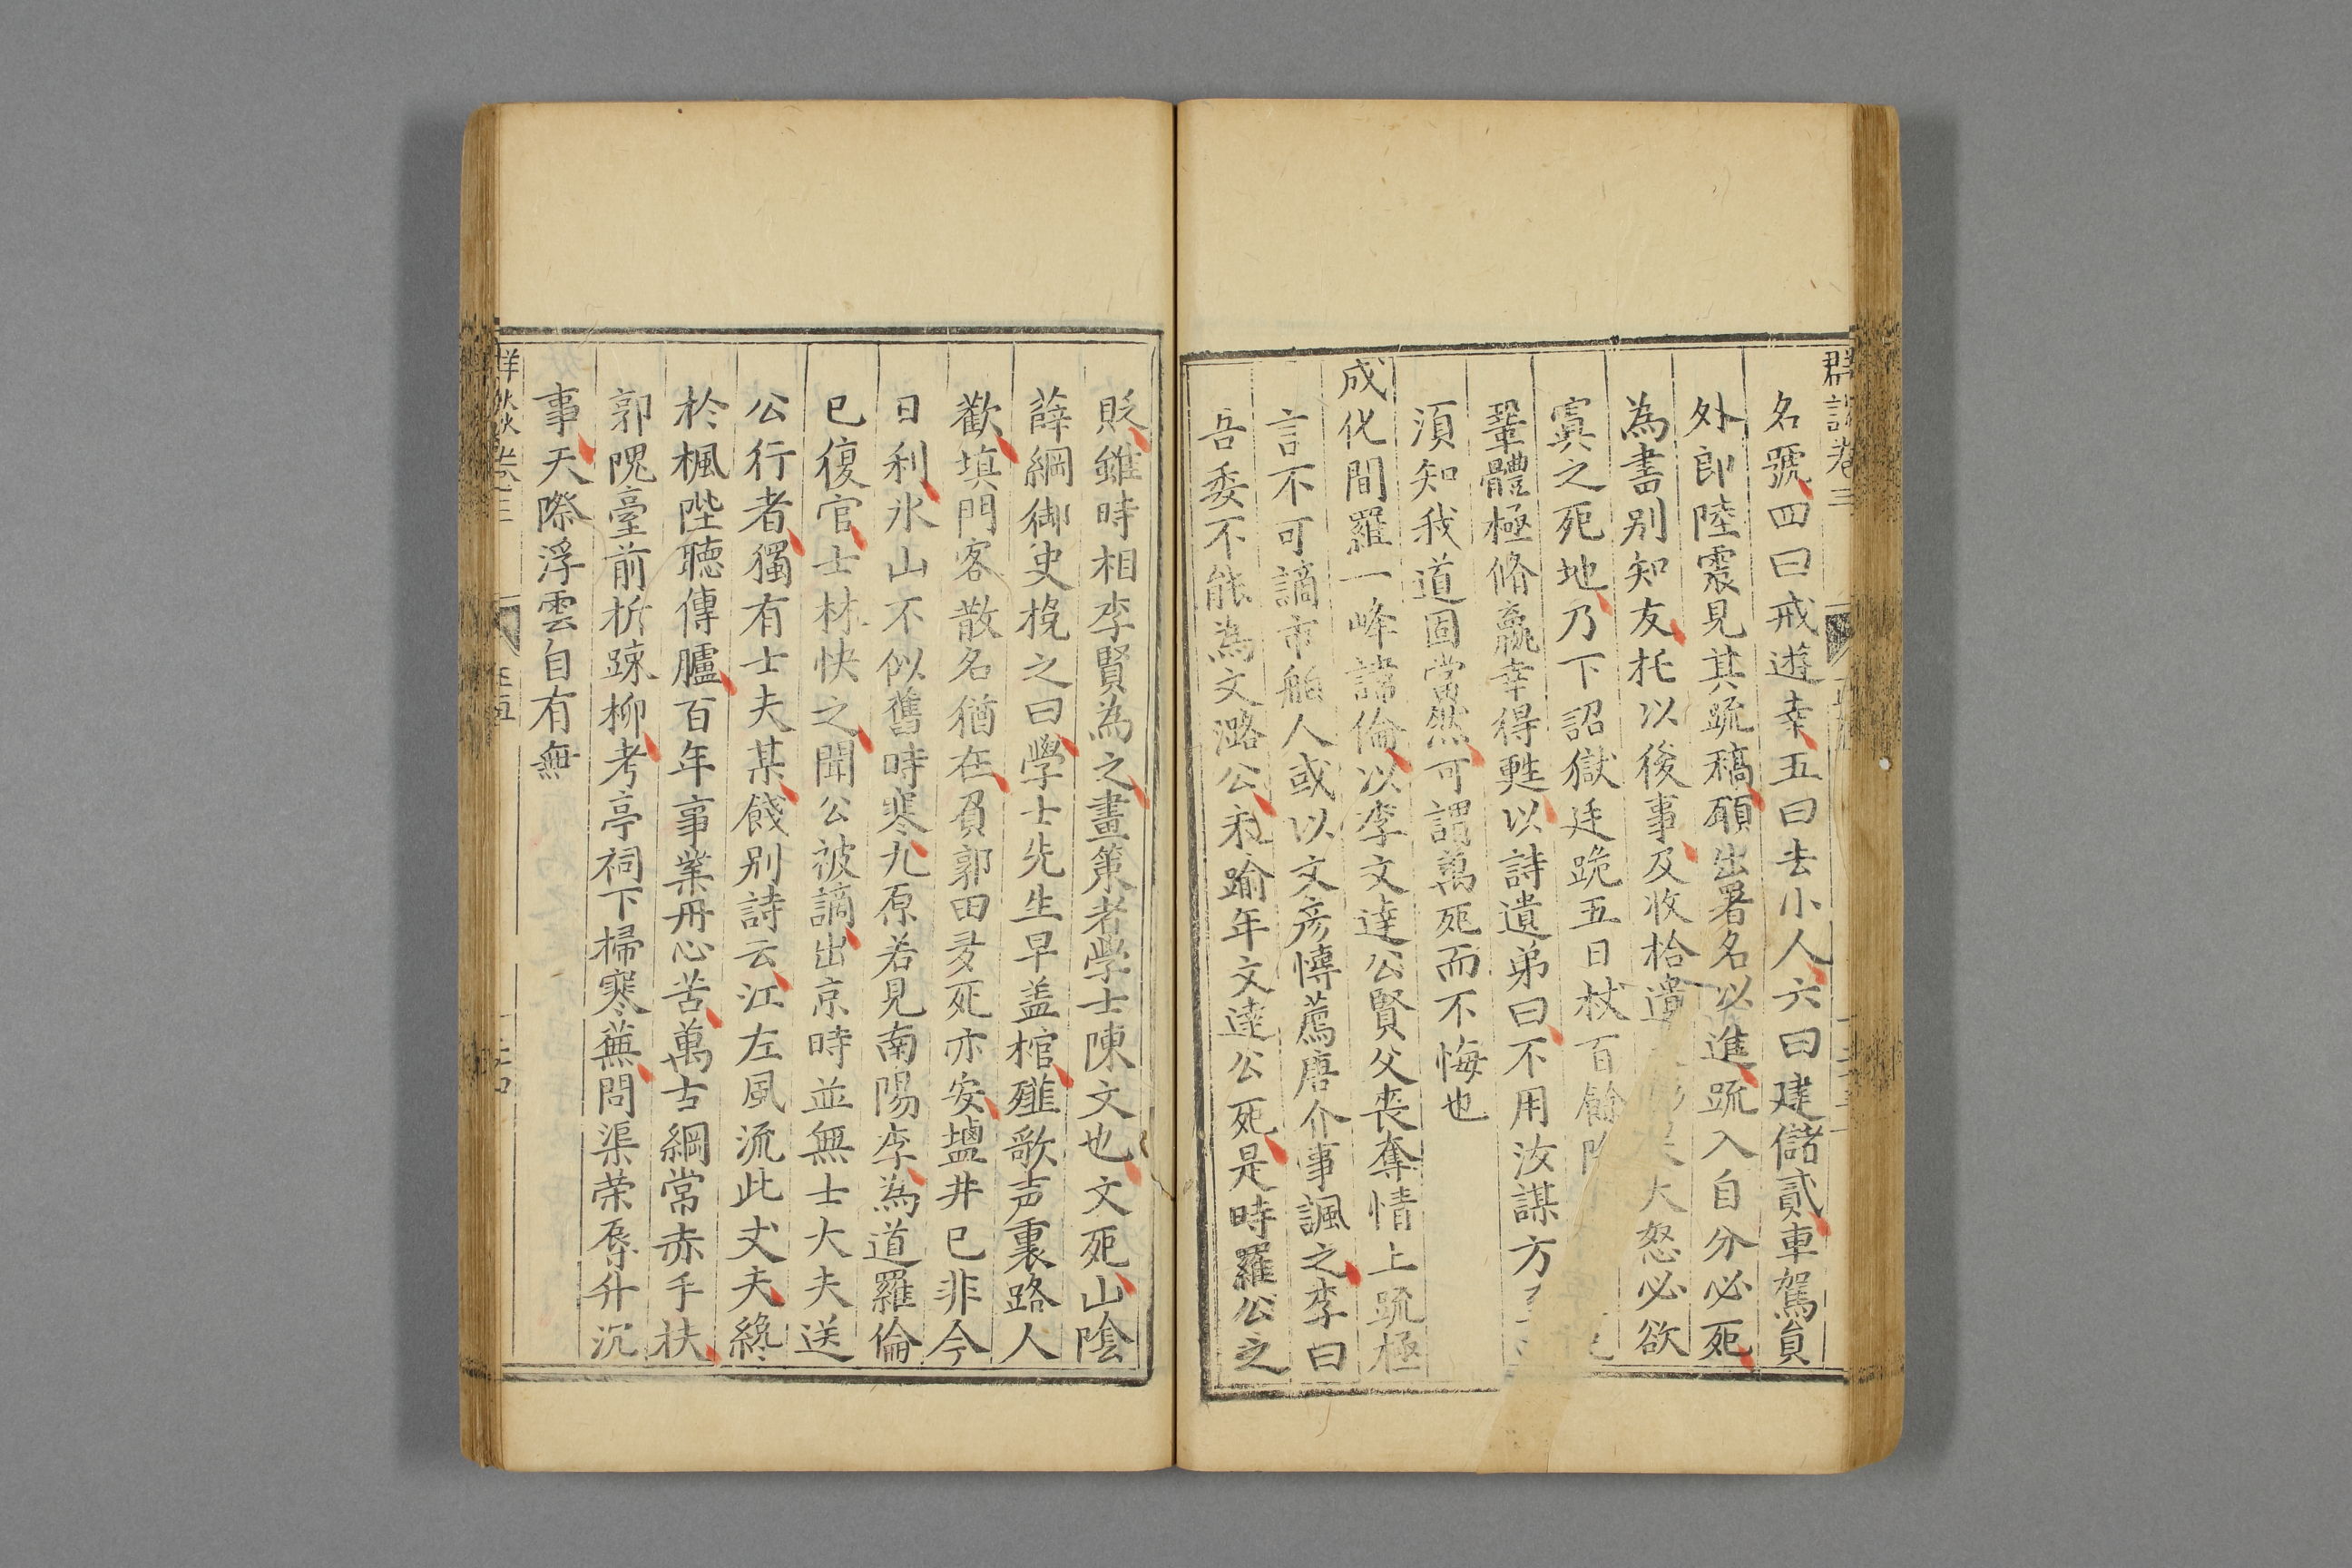 群談卷三
名號四曰戒遊幸五曰去小人六曰建儲貳車駕員
外郎陸震見其疏稿願出署名以進疏入自分必死
為書別知友托以後事及收拾遺 大怒必欲
寘之死地乃下詔獄廷跪五日杖百餘
鞏體極脩羸幸得甦以詩遺弟曰不用汝謀方
須知我道固當然可謂萬死而不悔也
成化間羅一峰諱倫以李文達公賢父喪奪情上疏極
言不可謫市舶人或以文彥愽薦唐介事諷之李曰
吾委不能為文潞公未踰年文達公死是時羅公之
貶雖時相李賢為之畫策者學士陳文也文死山陰
薛綱御史挽之曰學士先生早盖棺薤歌声裏路人
歡填門客散名猶在負郭田多死亦安塩井已非今
日利氷山不似舊時寒九原若見南陽李為道羅倫
已復官士林快之聞公被謫出京時並無士大夫送
公行者獨有士夫某餞別詩云江左風流此丈夫終
於楓陛聽傳臚百年事業丹心苦萬古綱常赤手扶
郭隗臺前折疎柳考亭祠下掃寒蕪問渠荣辱升沉
事天際浮雲自有無